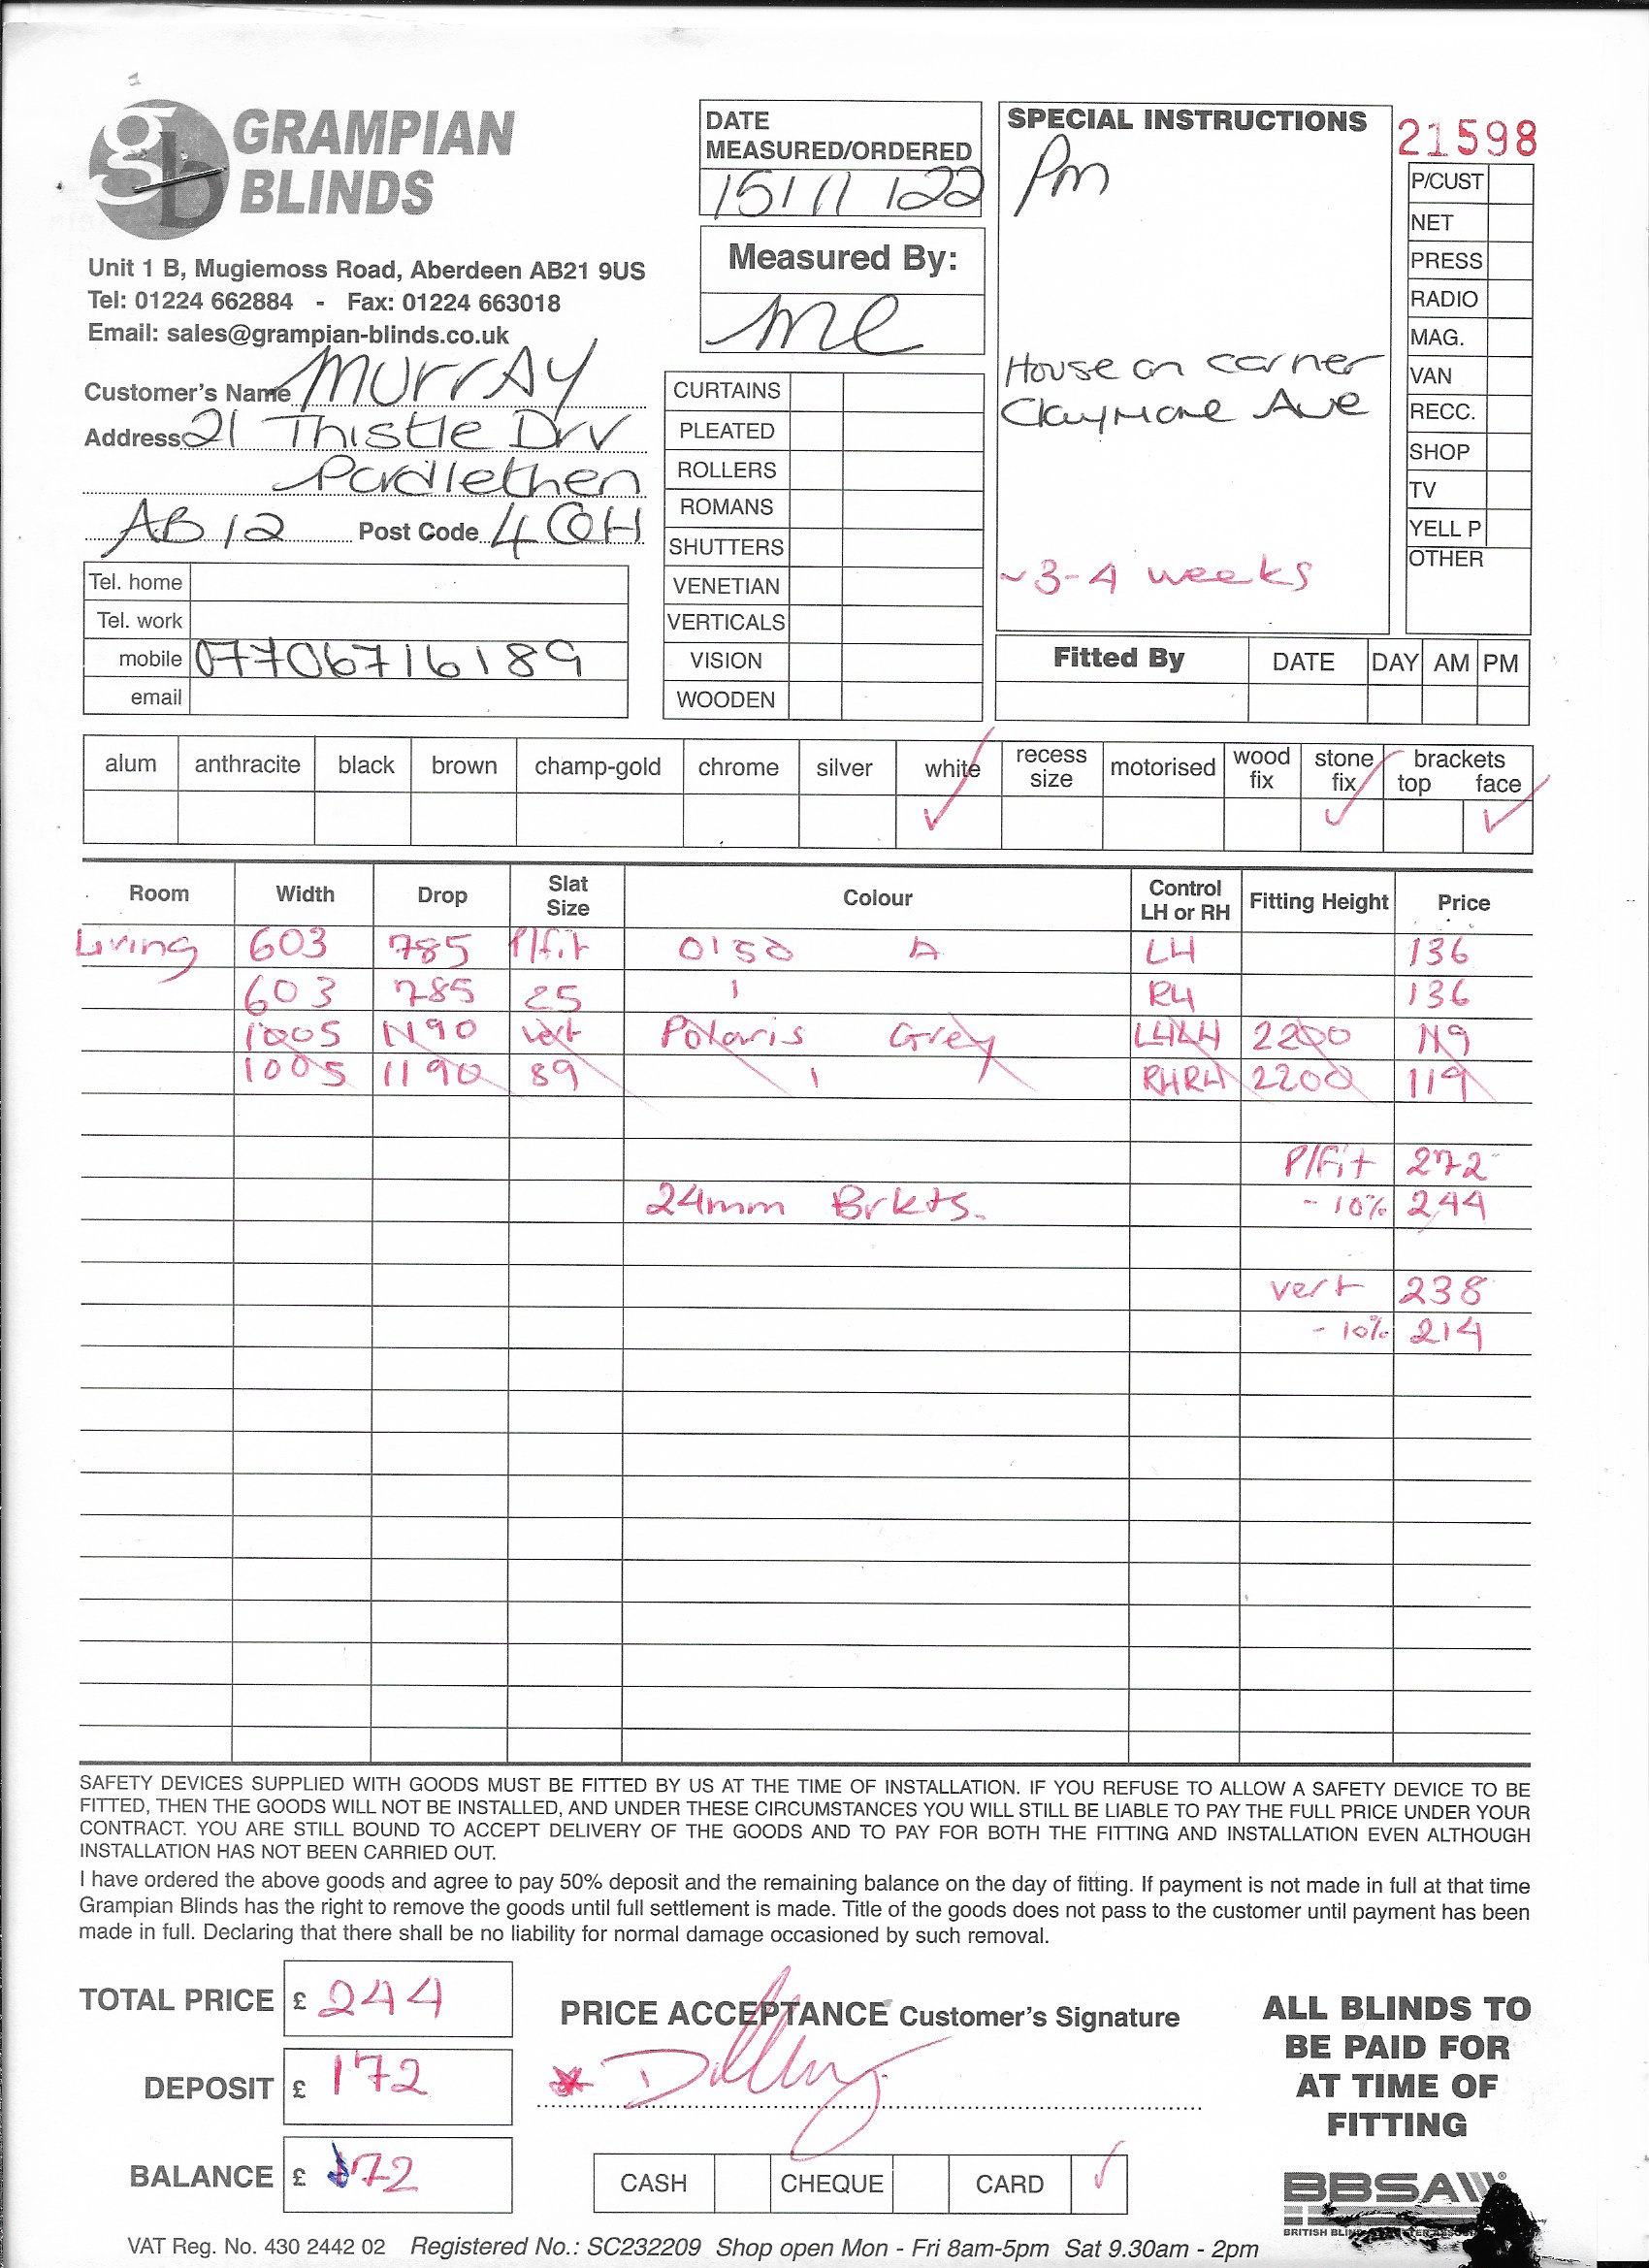 GRAMPIAN
BLINDS
Unit 1 B, Mugiemoss Road, Aberdeen AB21 9US
Tel: 01224 662884 - Fax: 01224 663018
Email: sales@grampian-blinds.co.uk
Customer's Name Murray
Address 21 Thistle Drv
Pordlethen
AB12 Post Code 4QH
Tel. home
Tel. work
mobile 07706716189
email
DATE
MEASURED/ORDERED
15/11/22
Measured By:
me
CURTAINS
PLEATED
ROLLERS
ROMANS
SHUTTERS
VENETIAN
VERTICALS
VISION
WOODEN
SPECIAL INSTRUCTIONS
Pm
House on corner
Claymore Ave
~3-4 weeks
21598
P/CUST
NET
PRESS
RADIO
MAG.
VAN
RECC.
SHOP
TV
YELL P
OTHER
Fitted By DATE DAY AM PM
alum anthracite black brown champ-gold chrome silver white recess size motorised wood fix stone fix brackets top face
✓ ✓ ✓
Room Width Drop Slat Size Colour Control LH or RH Fitting Height Price
Living 603 785 P/fit 0150 A LH 136
603 785 25 RH 136
1005 1190 vert Polaris Grey LHLH 2200 119
1005 1190 89 RHRH 2200 119
P/Fit 272
24mm Brkts. - 10% 244
vert 238
- 10% 214
SAFETY DEVICES SUPPLIED WITH GOODS MUST BE FITTED BY US AT THE TIME OF INSTALLATION. IF YOU REFUSE TO ALLOW A SAFETY DEVICE TO BE
FITTED, THEN THE GOODS WILL NOT BE INSTALLED, AND UNDER THESE CIRCUMSTANCES YOU WILL STILL BE LIABLE TO PAY THE FULL PRICE UNDER YOUR
CONTRACT. YOU ARE STILL BOUND TO ACCEPT DELIVERY OF THE GOODS AND TO PAY FOR BOTH THE FITTING AND INSTALLATION EVEN ALTHOUGH
INSTALLATION HAS NOT BEEN CARRIED OUT.
I have ordered the above goods and agree to pay 50% deposit and the remaining balance on the day of fitting. If payment is not made in full at that time
Grampian Blinds has the right to remove the goods until full settlement is made. Title of the goods does not pass to the customer until payment has been
made in full. Declaring that there shall be no liability for normal damage occasioned by such removal.
TOTAL PRICE £ 244
DEPOSIT £ 172
BALANCE £ 172
PRICE ACCEPTANCE Customer's Signature
CASH CHEQUE CARD ✓
ALL BLINDS TO
BE PAID FOR
AT TIME OF
FITTING
BBSA
VAT Reg. No. 430 2442 02 Registered No.: SC232209 Shop open Mon - Fri 8am-5pm Sat 9.30am - 2pm